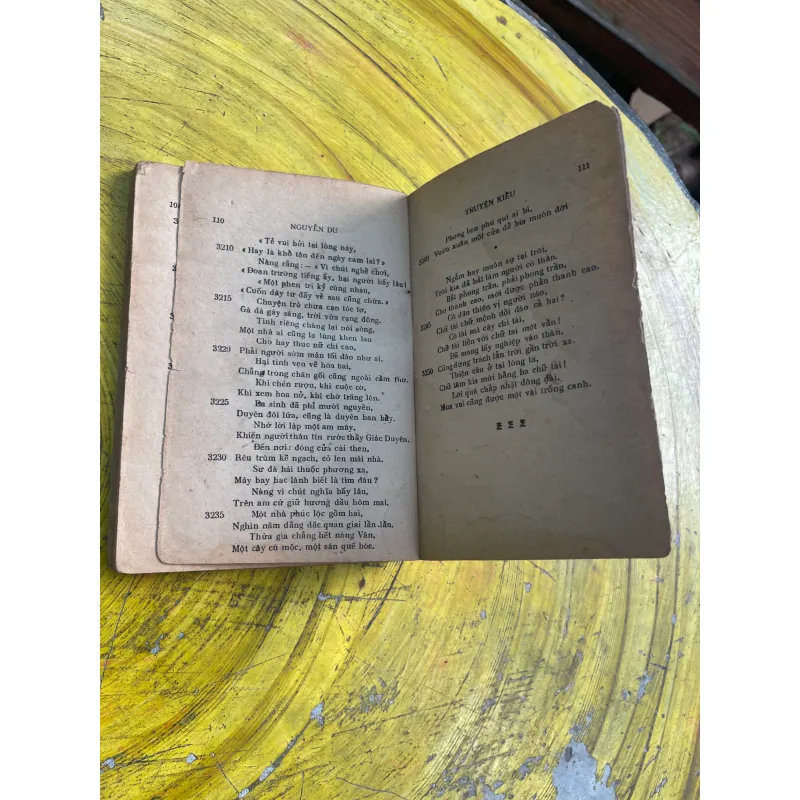 108
110
NGUYỄN DU
« Tẻ vui bởi tại lòng này,
3210 « Hay là khổ tận đến ngày cam lai ? »
Nàng rằng : — « Vì chút nghề chơi,
« Đoạn trường tiếng ấy, hại người bấy lâu !
« Một phen tri kỷ cùng nhau,
« Cuốn dây từ đấy về sau cũng chừa. »
3215 Chuyện trò chưa cạn tóc tơ,
Gà đà gáy sáng, trời vừa rạng đông.
Tình riêng chàng lại nói sòng,
Một nhà ai cũng lạ lùng khen lao
Cho hay thục nữ chí cao,
3220 Phải người sớm mận tối đào như ai,
Hai tình vẹn vẽ hòa hai,
Chẳng trong chăn gối cũng ngoài cầm thơ.
Khi chén rượu, khi cuộc cờ,
Khi xem hoa nở, khi chờ trăng lên.
3225 Ba sinh đã phỉ mười nguyền,
Duyên đôi lứa, cũng là duyên bạn bầy.
Nhớ lời lập một am mây,
Khiến người thân tín rước thầy Giác Duyên.
Đến nơi : đóng cửa cài then,
3230 Rêu trùm kẽ ngạch, cỏ len mái nhà.
Sư đà hái thuốc phương xa,
Mây bay hạc lánh biết là tìm đâu ?
Nàng vì chút nghĩa bấy lâu,
Trên am cứ giữ hương dầu hôm mai.
3235 Một nhà phúc lộc gồm hai,
Nghìn năm dằng dặc quan giai lần lần.
Thừa gia chẳng hết nàng Vân,
Một cây cù mộc, một sân quế hòe.
TRUYỆN KIỀU
111
Phong lưu phú quí ai bì,
3240 Vườn xuân một cửa để bia muôn đời
*
Ngẫm hay muôn sự tại trời,
Trời kia đã bắt làm người có thân.
Bắt phong trần, phải phong trần,
Cho thanh cao, mới được phần thanh cao.
3245 Có đâu thiên vị người nào,
Chữ tài chữ mệnh dồi dào cả hai ?
Có tài mà cậy chi tài,
Chữ tài liền với chữ tai một vần !
Đã mang lấy nghiệp vào thân,
3250 Cũng đừng trách lẫn trời gần trời xa.
Thiện căn ở tại lòng ta,
Chữ tâm kia mới bằng ba chữ tài !
Lời quê chắp nhặt dông dài,
Mua vui cũng được một vài trống canh.